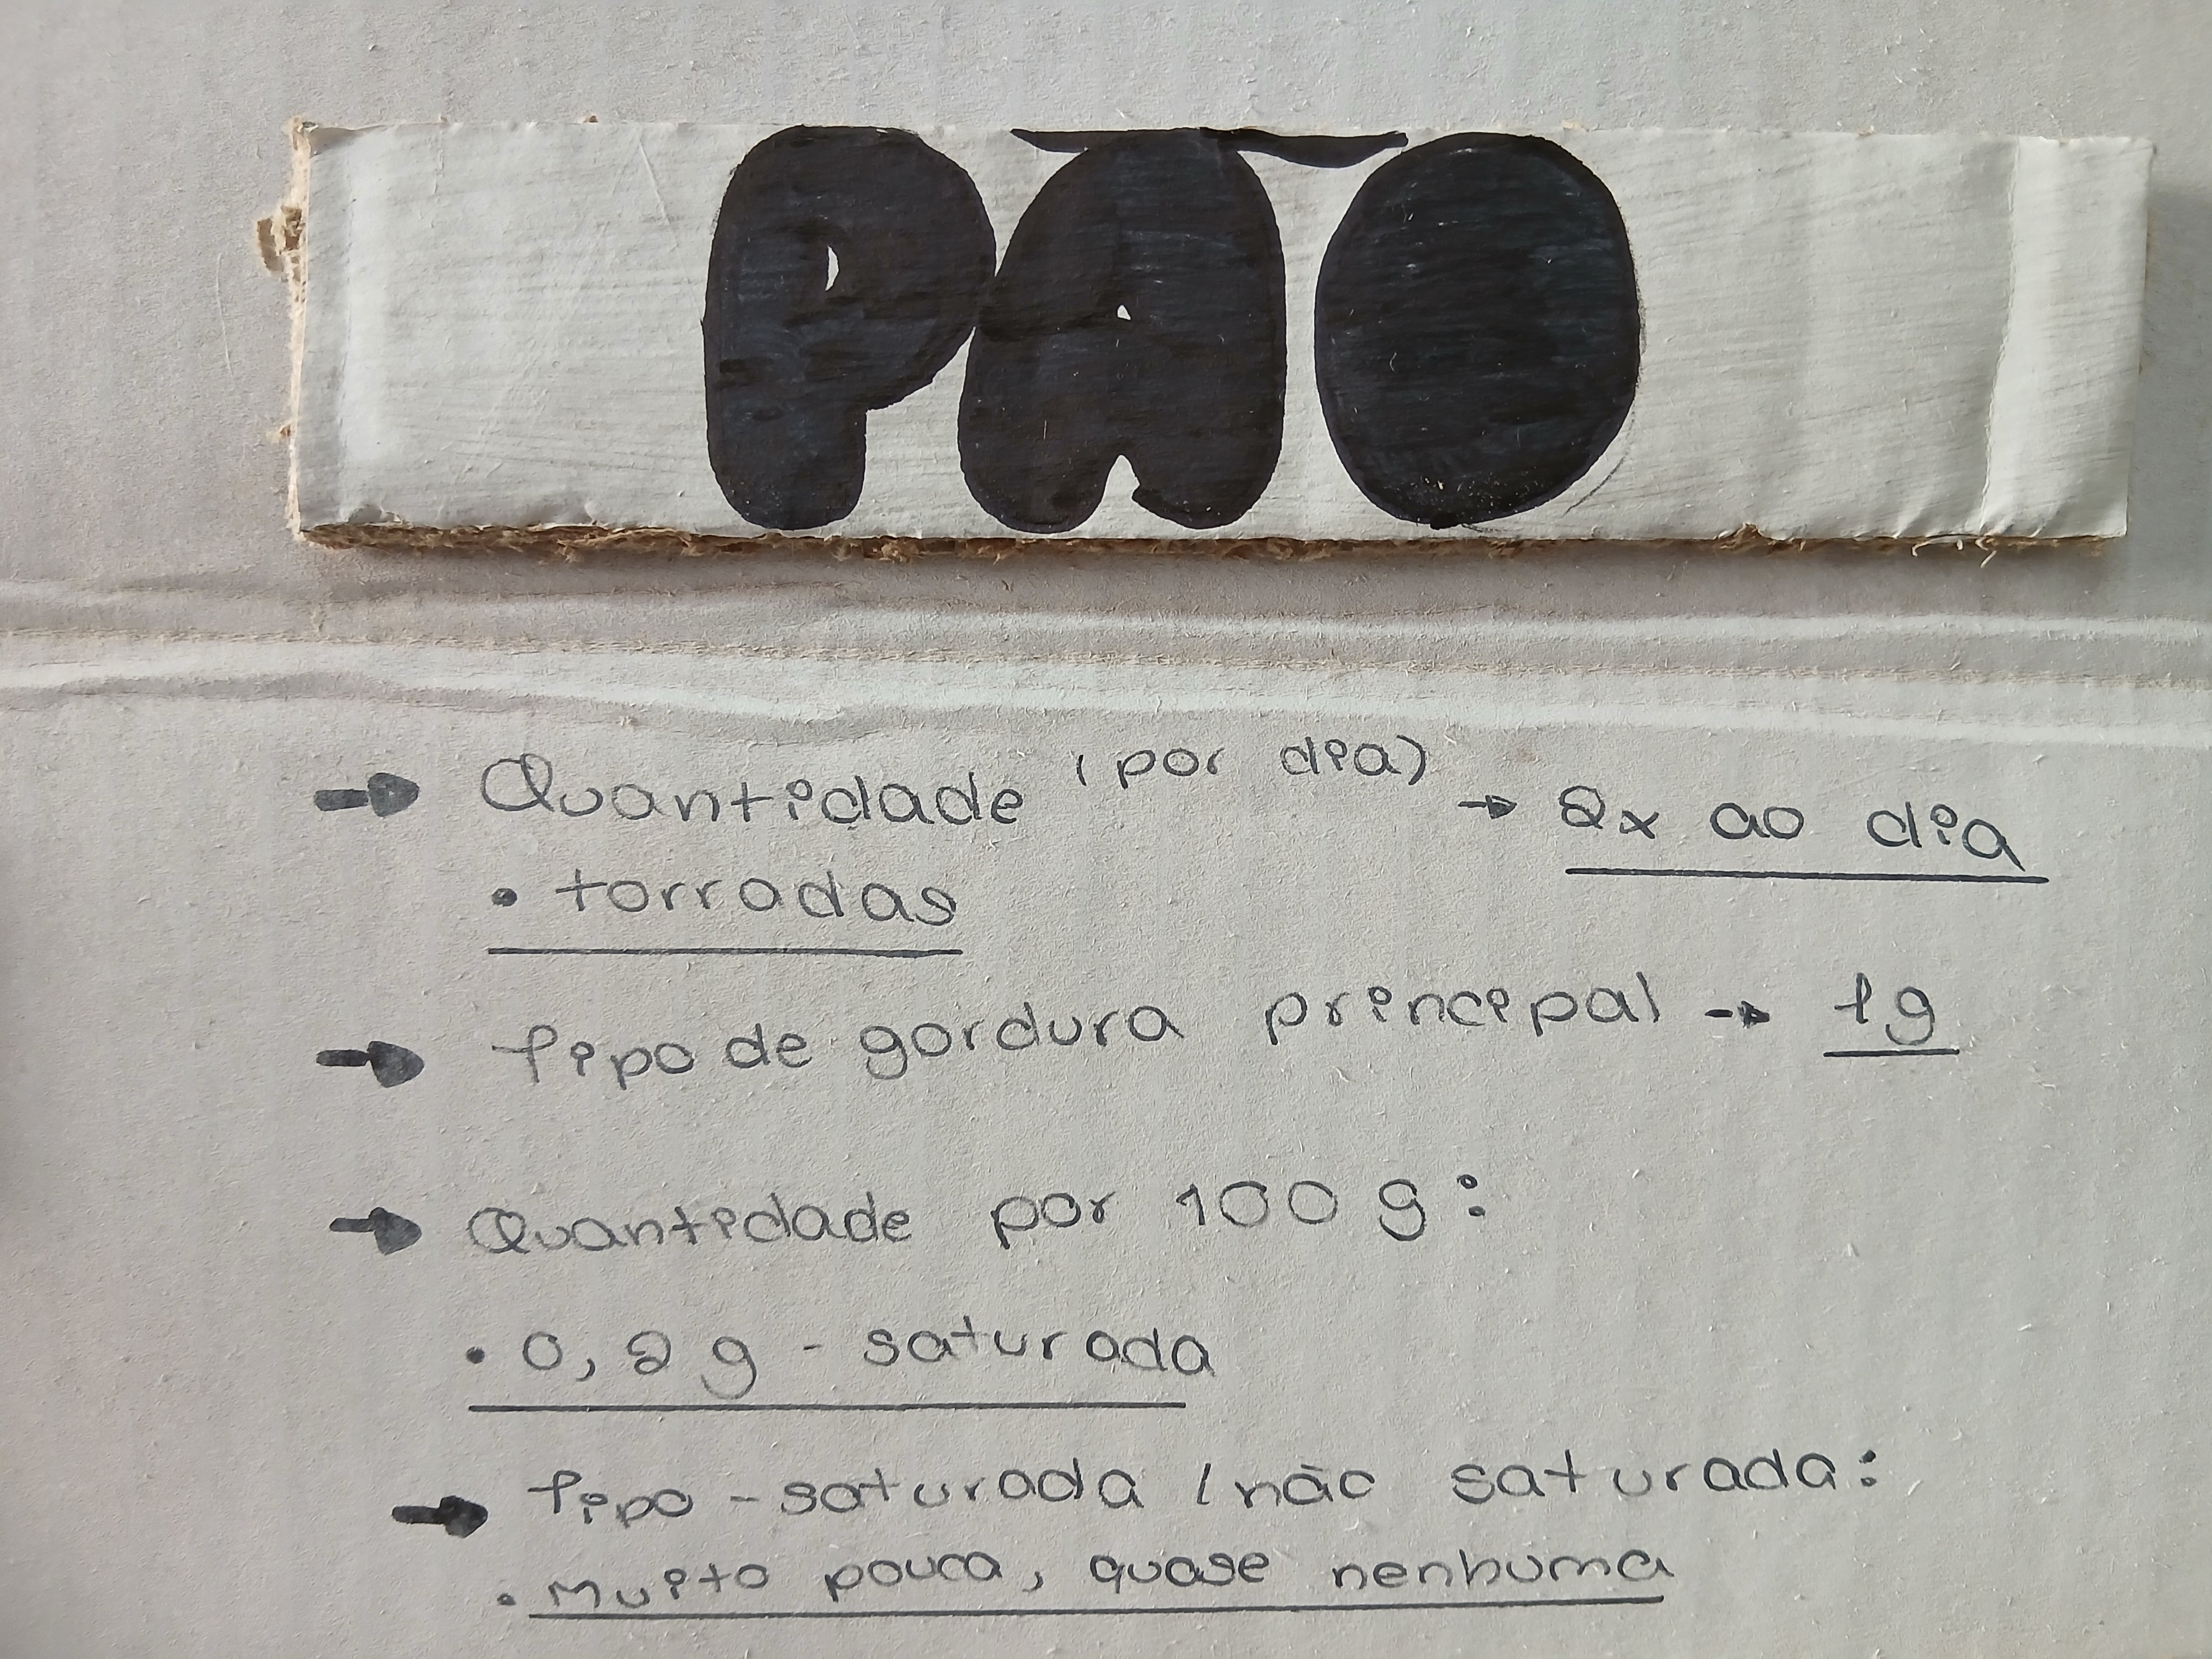 PÃO
→ Quantidade (por dia) → 2x ao dia
• torradas
→ Tipo de gordura principal → 1g
→ Quantidade por 100 g:
• 0,2 g - saturada
→ Tipo - saturada / não saturada:
• Muito pouca, quase nenhuma